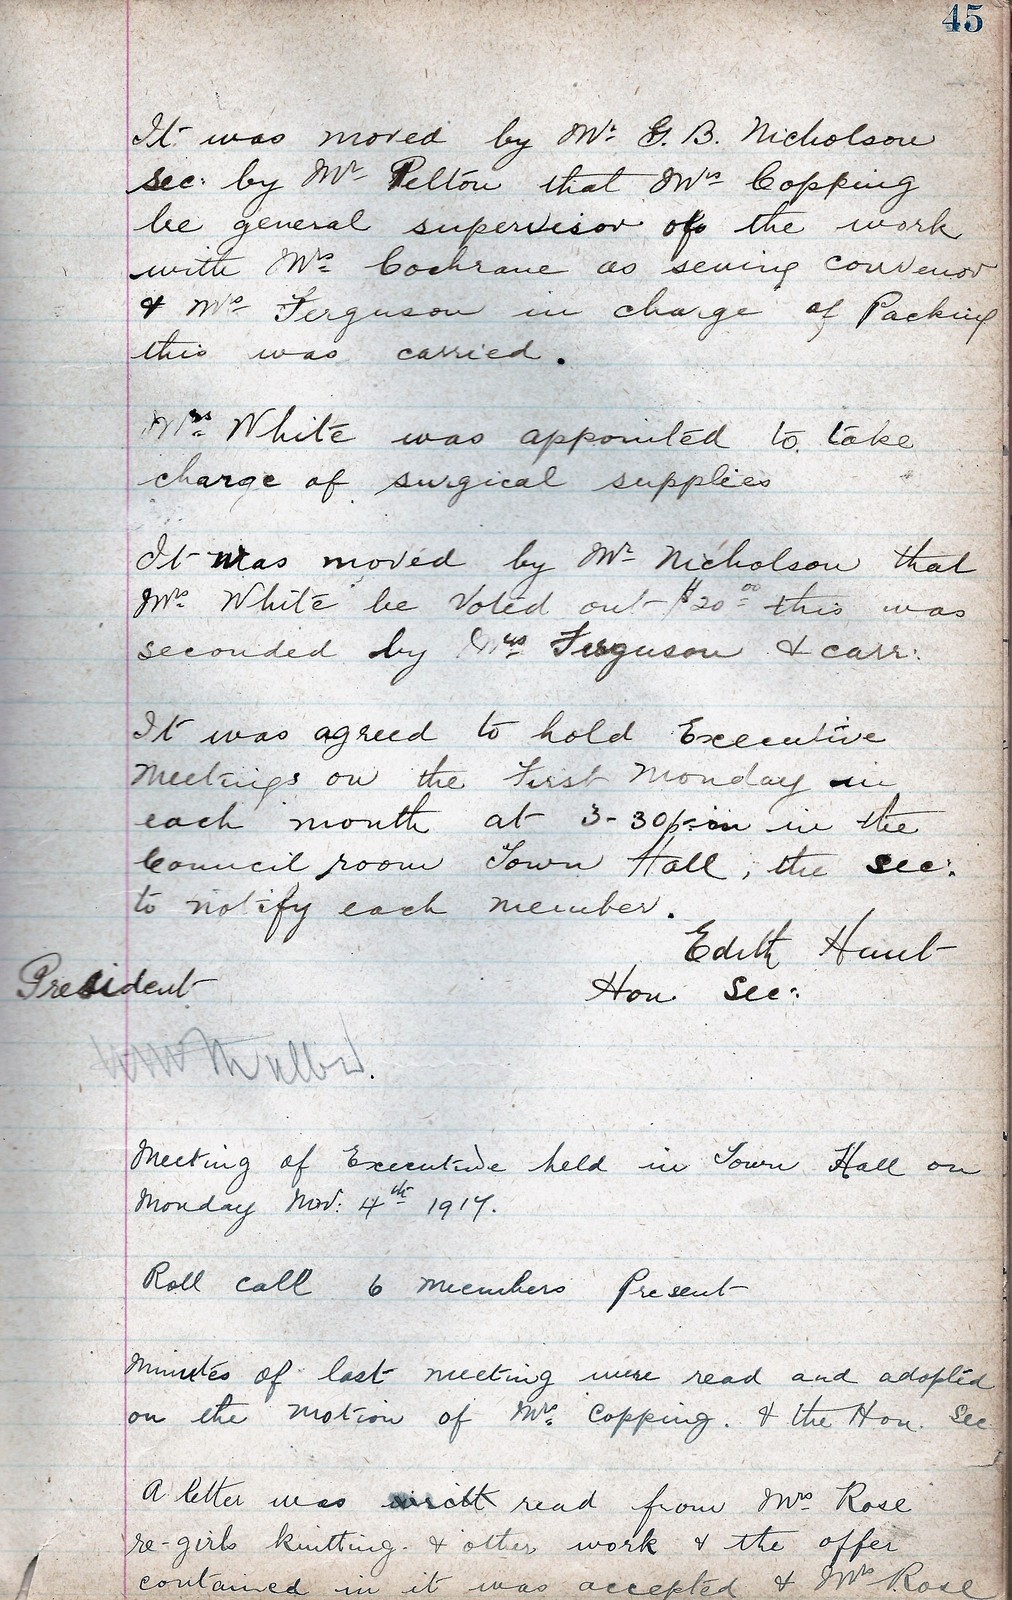 45
It was moved by Mr. G. B. Nicholson
sec: by Mr Pelton that Mrs Copping
be general supervisor of the work
with Mrs. Cochrane as sewing convenor
& Mrs. Ferguson in charge of Packing
this was carried.
Mrs. White was appointed to take
charge of surgical supplies
It was moved by Mr Nicholson that
Mrs. White be Voted out $20.00 this was
seconded by Mrs. Ferguson & carr:
It was agreed to hold Executive
Meetings on the First Monday in
each month at 3-30 p.m in the
Council room Town Hall, the sec:
to notify each member.
Edith Hunt
President Hon Sec:
Meeting of Executive held in Town Hall on
Monday Nov: 4th 1917.
Roll call 6 members Present
Minutes of last meeting were read and adopted
on the motion of Mrs. Copping. & the Hon. Sec
A letter was read from Mrs. Rose
re-girls knitting. & other work & the offer
contained in it was accepted & Mrs Rose